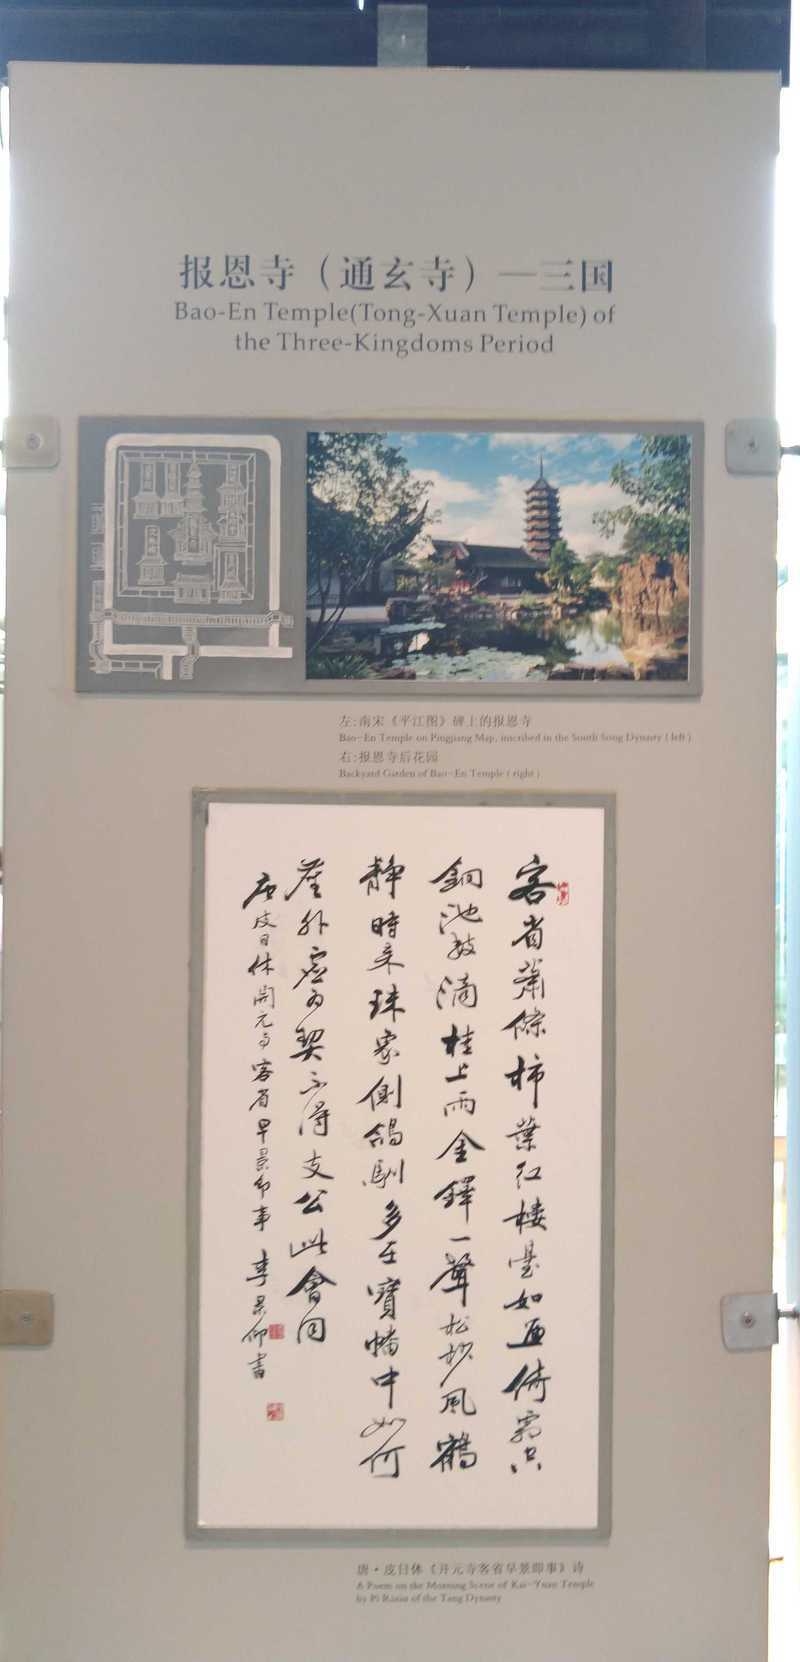 报恩寺（通玄寺）—三国
Bao-En Temple(Tong-Xuan Temple) of
the Three-Kingdoms Period
左:南宋《平江图》碑上的报恩寺
Bao-En Temple on Pingjiang Map, inscribed in the South Song Dynasty ( left )
右:报恩寺后花园
Backyard Garden of Bao-En Temple ( right )
客省蕭條柿葉红樓臺如画倚霜空
銅池数滴桂上雨金鐸一聲松杪風鶴
靜時来珠象側鴿馴多在寶幡中如何
塵外虛为契不得支公此會同
唐皮日休開元寺客省早景即事 李景仰書
唐·皮日休《开元寺客省早景即事》诗
A Poem on the Morning Scene of Kai-Yuan Temple
by Pi Rixiu of the Tang Dynasty